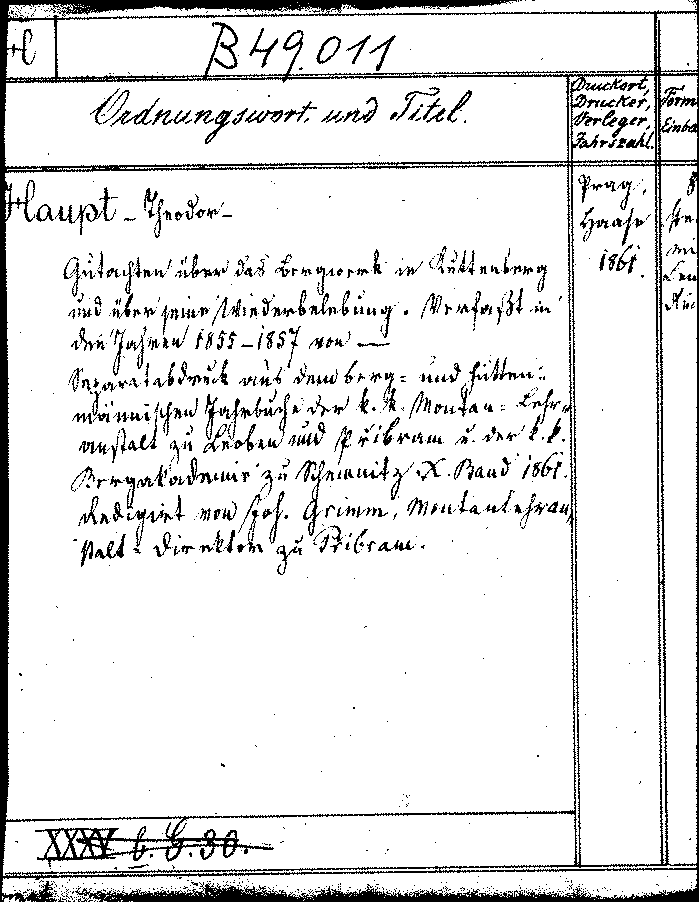 B 49.011
Ordnungswort und Titel.
Druckort,
Drucker,
Verleger,
Jahrszahl.
Form
Einba
Haupt - Theodor -
Gutachten über das Bergwerk in Kuttenberg
und über seine Wiederbelebung. Verfaßt in
den Jahren 1855-1857 von —
Separatabdruck aus dem berg- und hütten-
männischen Jahrbuche der k. k. Montan-Lehr-
anstalt zu Leoben und Přibram u. der k. k.
Bergakademie zu Schemnitz X. Band 1861.
Redigirt von Joh. Grimm, Montanlehran-
stalt-Direktor zu Přibram.
Prag,
Haase
1861.
8
XXXV b. G. 30.